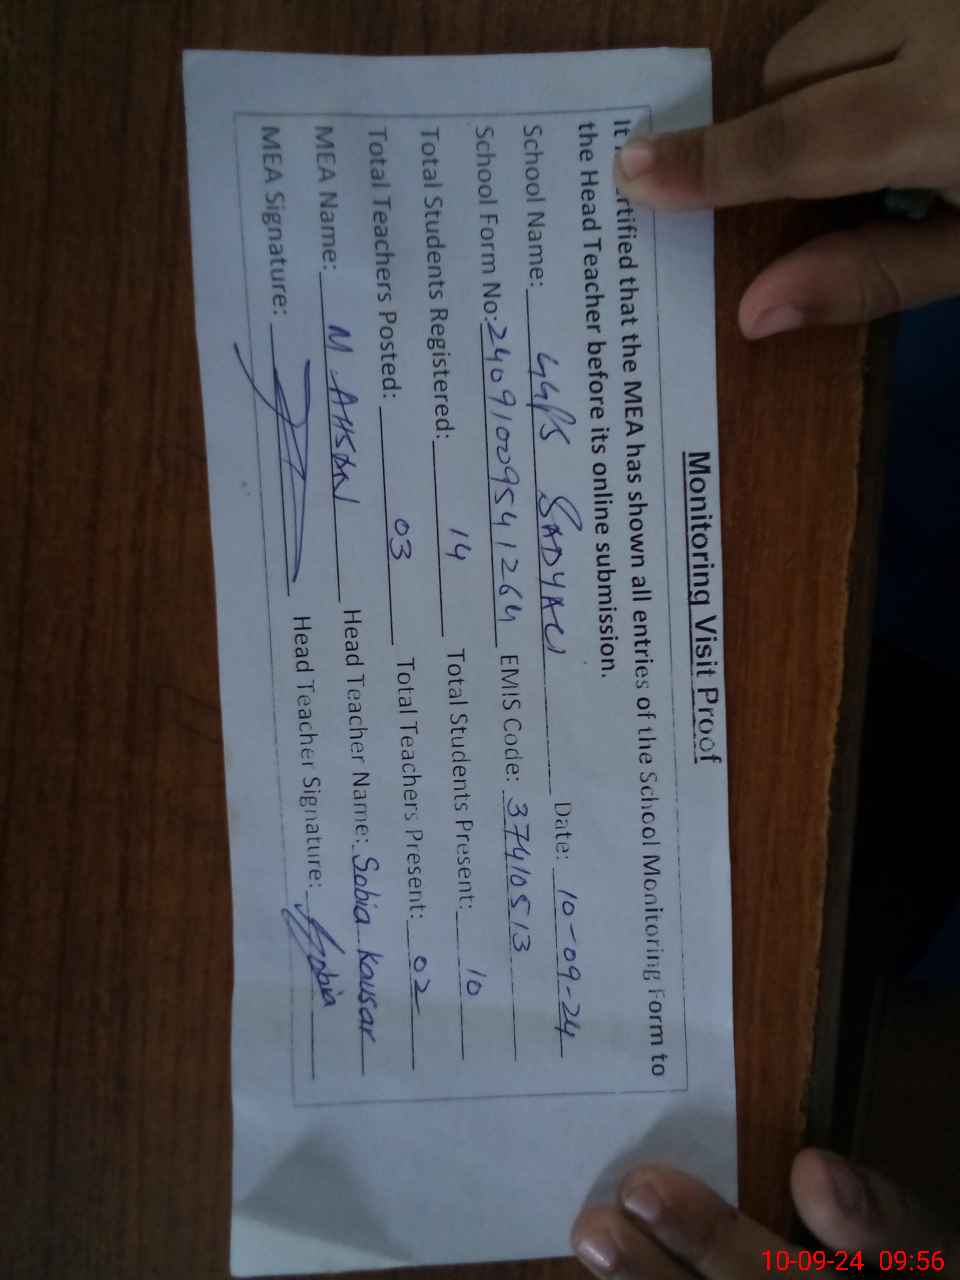 Monitoring Visit Proof
It rtified that the MEA has shown all entries of the School Monitoring Form to
the Head Teacher before its online submission.
School Name: GGPS Date: 10-09-24
School Form No: 24091009541264 EMIS Code: 37410513
Total Students Registered: 14 Total Students Present: 10
Total Teachers Posted: 03 Total Teachers Present: 02
MEA Name: M AHSAN Head Teacher Name: Sobia Kousar
MEA Signature: Head Teacher Signature: Sobia
10-09-24 09:56